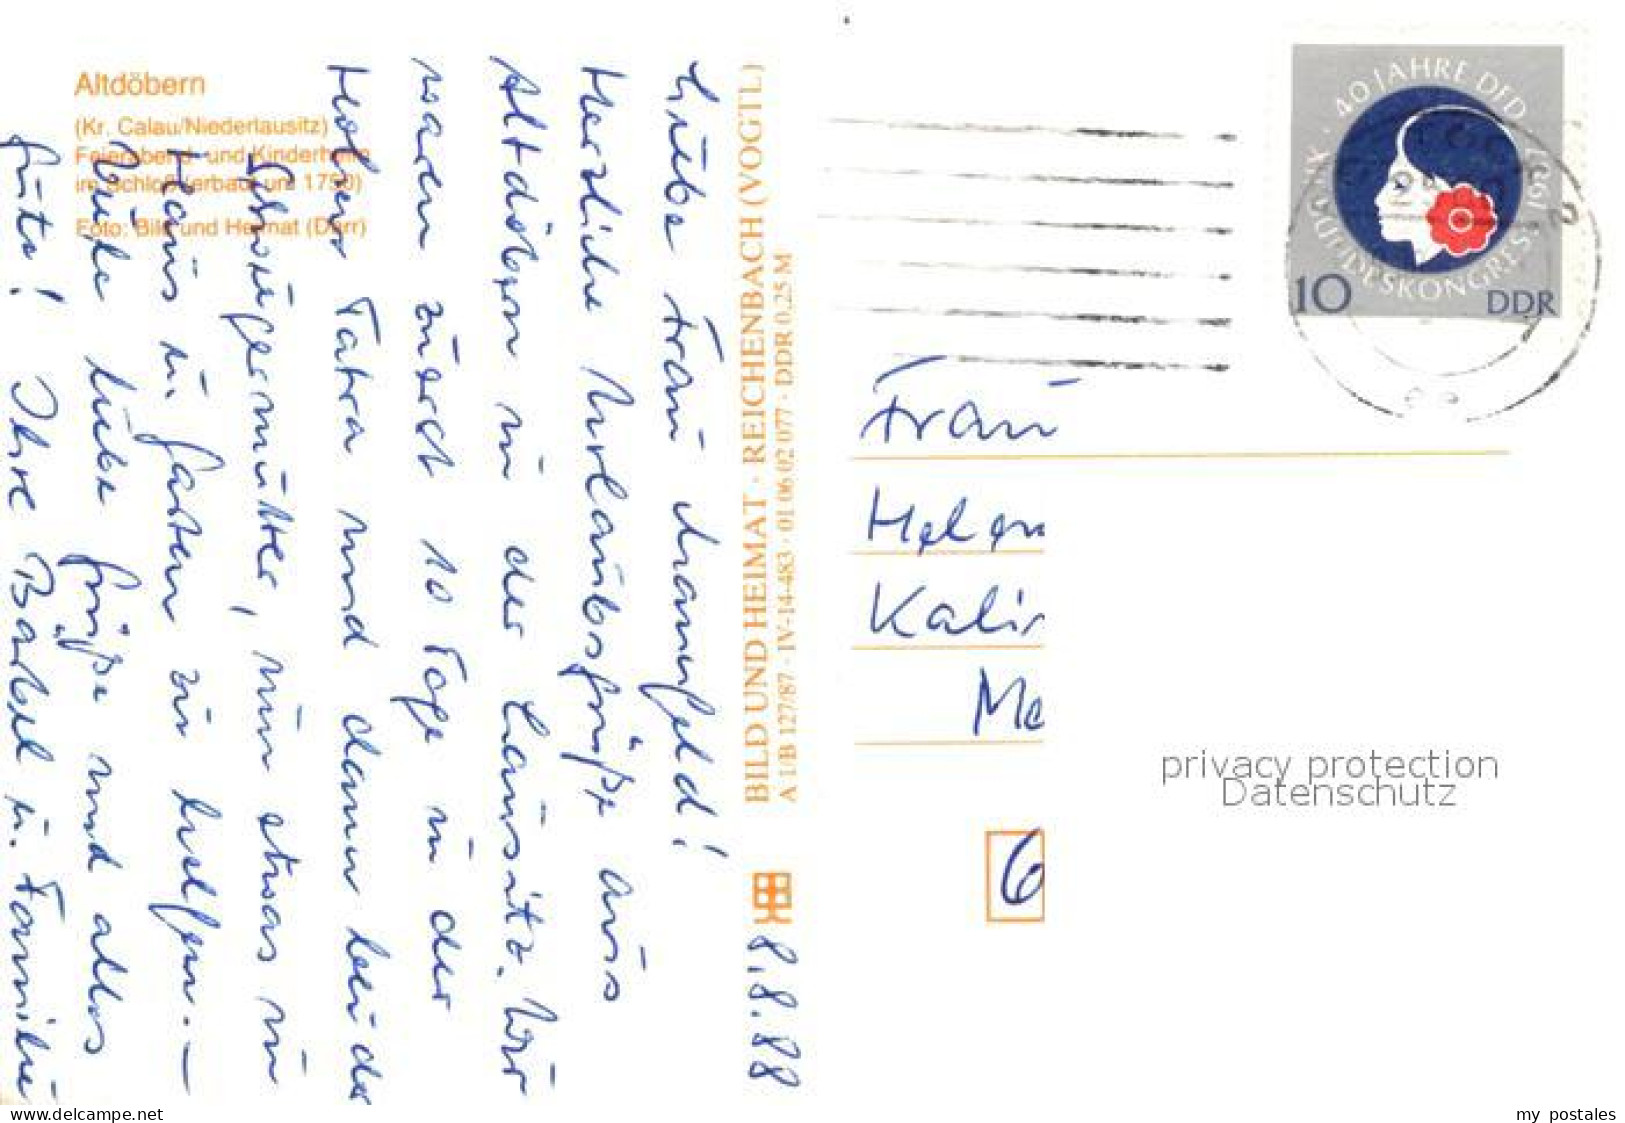 Altdöbern
(Kr. Calau/Niederlausitz)
Feierabend- und Kinderheim
im Schloß (erbaut um 1750)
Foto: Bild und Heimat (Dörr)
BILD UND HEIMAT · REICHENBACH (VOGTL)
A 1/B 127/87 · IV-14-483 · 01 06 02 077 · DDR 0,25 M
8.8.88
Liebe Frau Mansfeld!
Herzliche Urlaubsgrüße aus
Altdöbern in der Lausitz. Wir
waren zuerst 10 Tage in der
Hohen Tatra und dann bei der
Schwiegermutter, um etwas in
Haus u. Garten zu helfen. –
Viele liebe Grüße und alles
Gute! Ihre Bärbel u. Familie
40 JAHRE DFD 1987
XII. BUNDESKONGRESS
10 DDR
Frau
Helen
Kalir
Me
6
privacy protection
Datenschutz
www.delcampe.net
my_postales